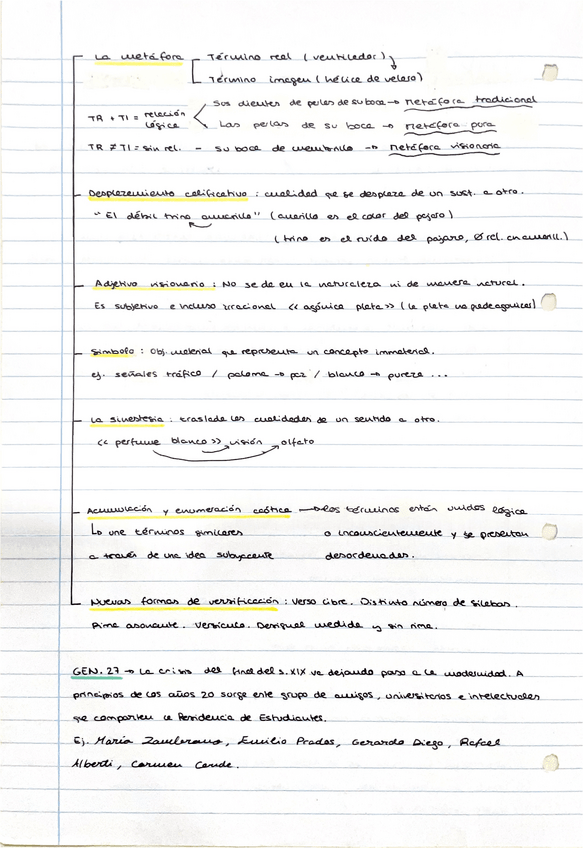 La metáfora Término real (ventilador)
Término imagen (hélice de velero)
Sus dientes de perlas de su boca → metáfora tradicional
TR + TI = relación lógica
Las perlas de su boca → metáfora pura
TR ≠ TI = sin rel. - su boca de membrillo → metáfora visionaria
Desplazamiento calificativo : cualidad que se desplaza de un sust. a otro.
"El débil trino amarillo" (amarillo es el color del pájaro)
(trino es el ruido del pájaro, Ø rel. en amarill.)
Adjetivo visionario : No se da en la naturaleza ni de manera natural.
Es subjetivo e incluso irracional << agónica plata >> (la plata no puede agonizar)
Símbolo : Obj. material que representa un concepto inmaterial.
ej. señales tráfico / paloma → paz / blanco → pureza ...
La sinestesia : traslada las cualidades de un sentido a otro.
<< perfume blanco >> visión , olfato
Acumulación y enumeración caótica → los términos están unidos lógica
Lo une términos similares o inconscientemente y se presentan
a través de una idea subyacente desordenadas.
Nuevas formas de versificación : Verso libre. Distinto número de sílabas.
Rima asonante. Versículo. Desigual medida y sin rima.
GEN. 27 → La crisis del final del s. XIX va dejando paso a la modernidad. A
principios de los años 20 surge este grupo de amigos, universitarios e intelectuales
que comparten la Residencia de Estudiantes.
Ej. María Zambrano, Emilio Prados, Gerardo Diego, Rafael
Alberti, Carmen Conde.